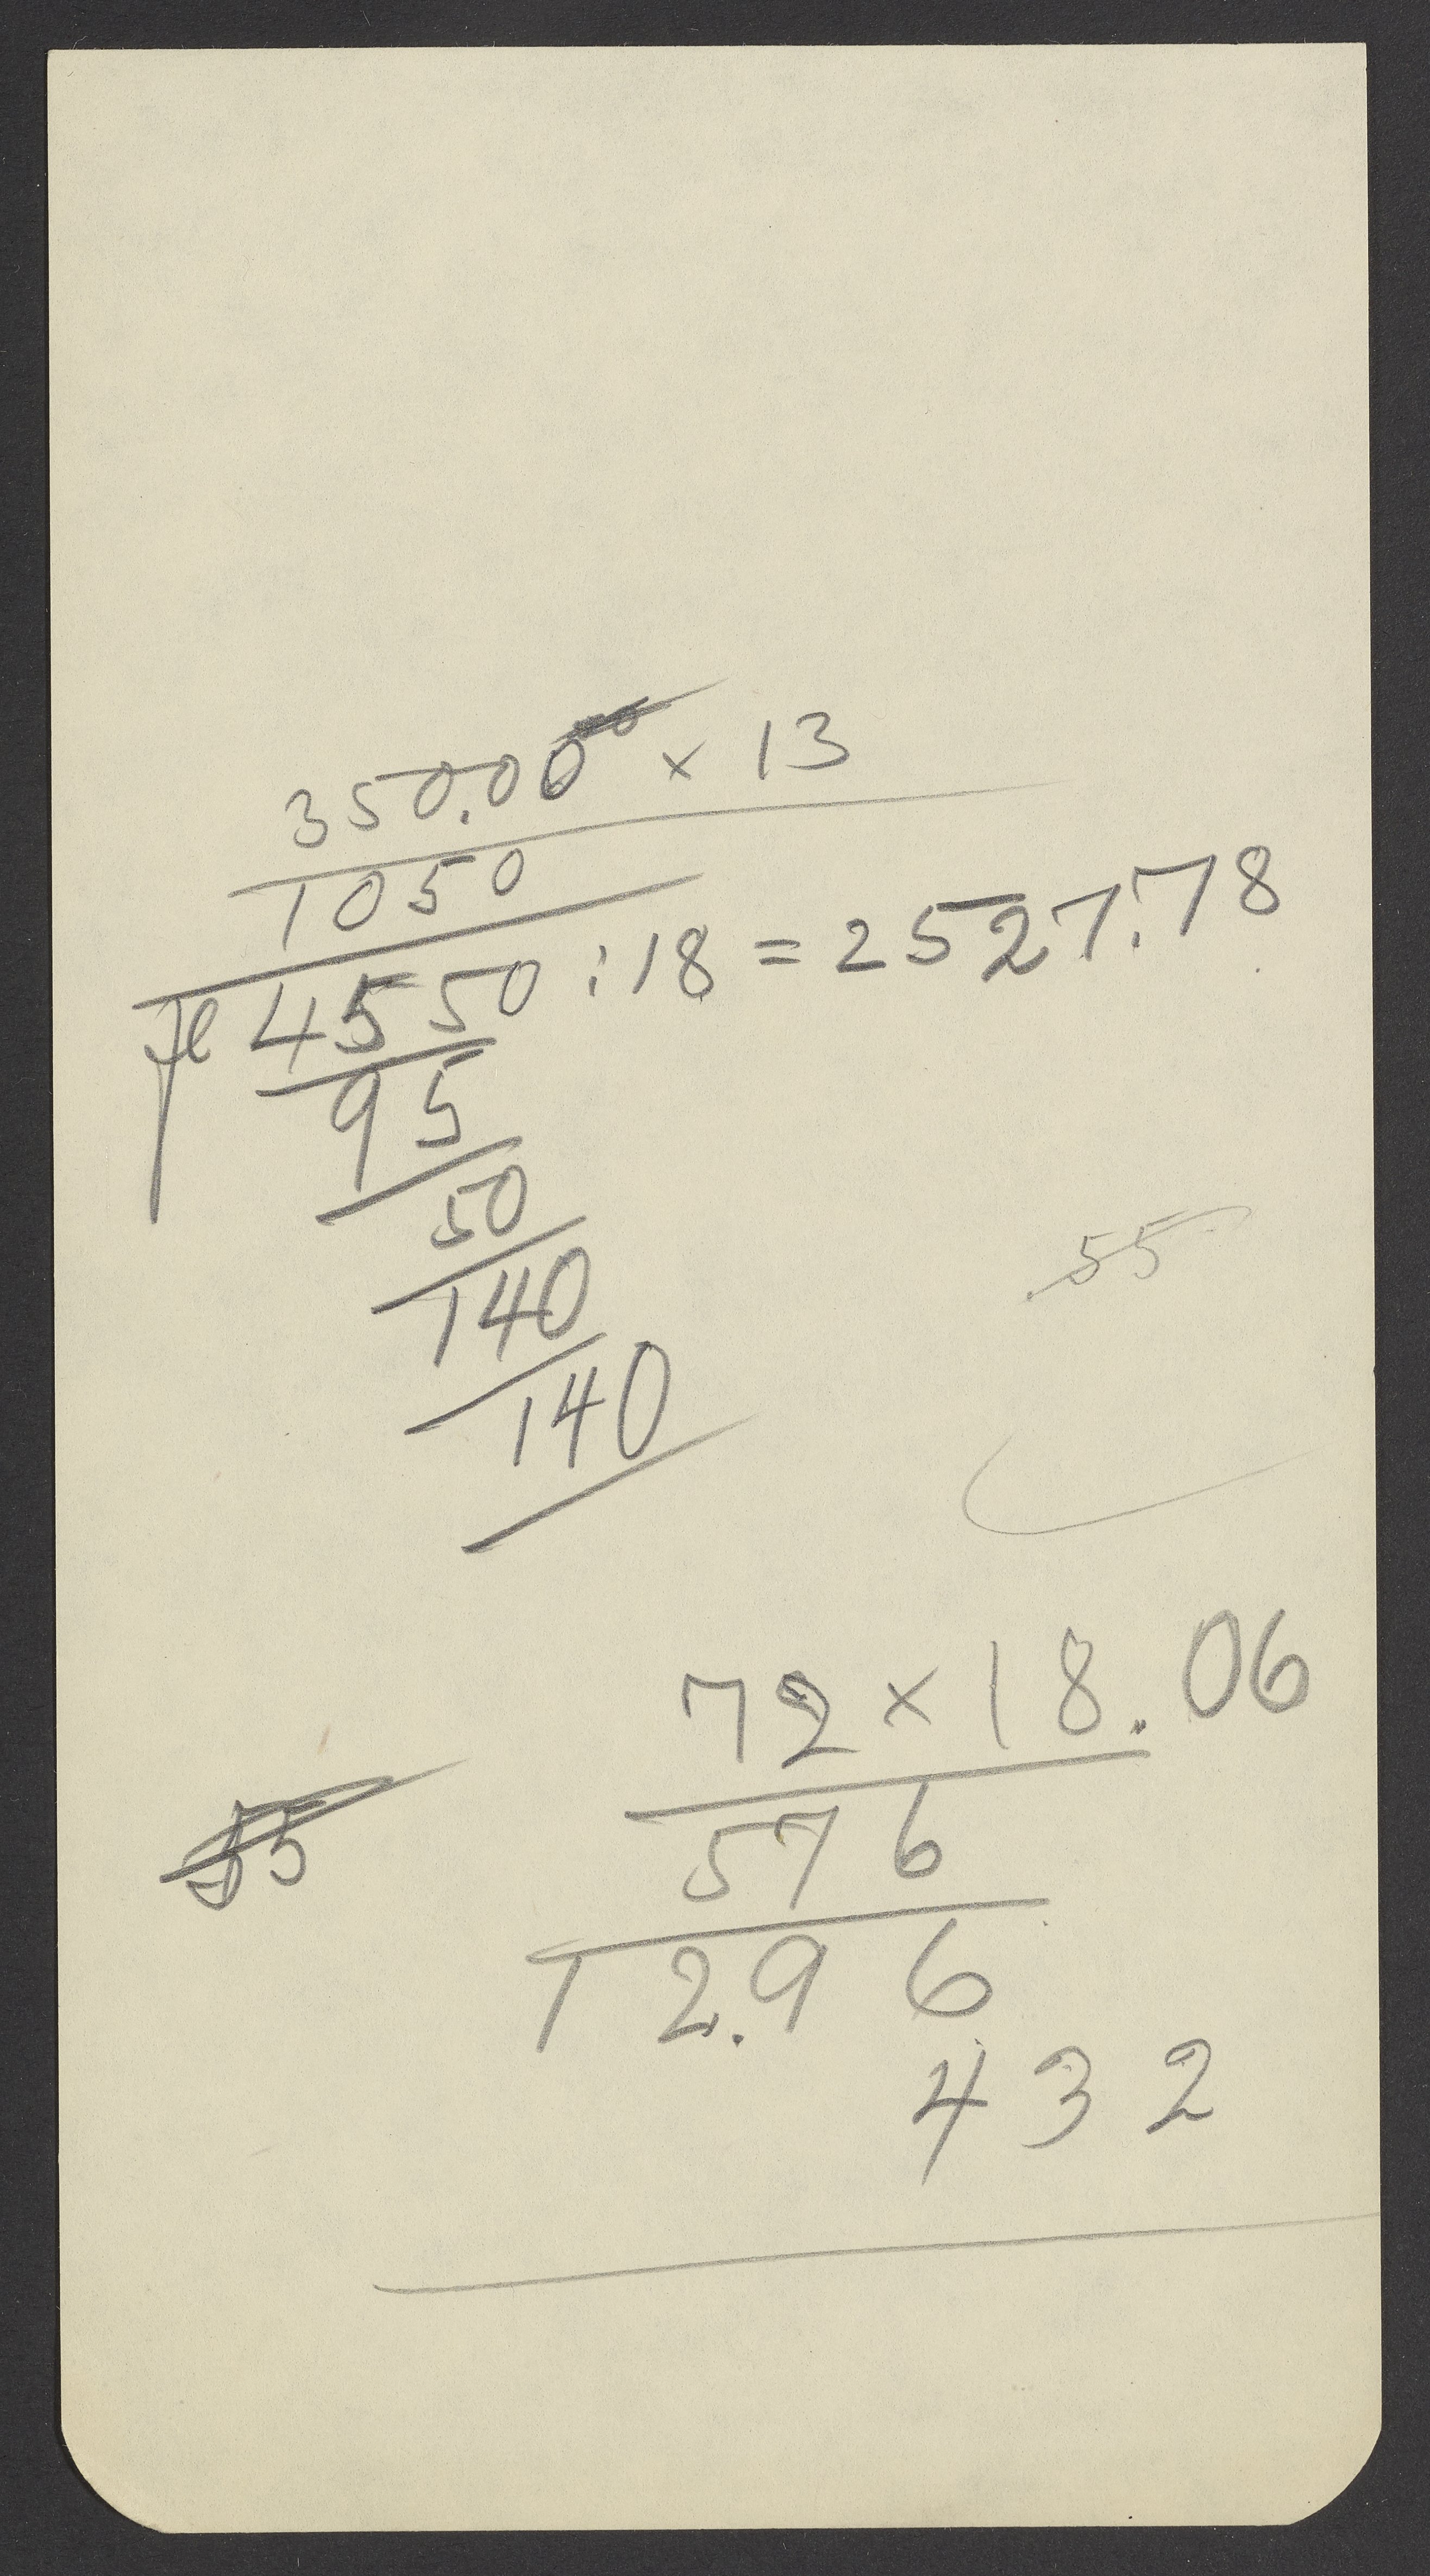 350.00 × 13
1050
4550 : 18 = 2527.78
95
50
140
55
140
72 × 18.06
55
576
12.96
432